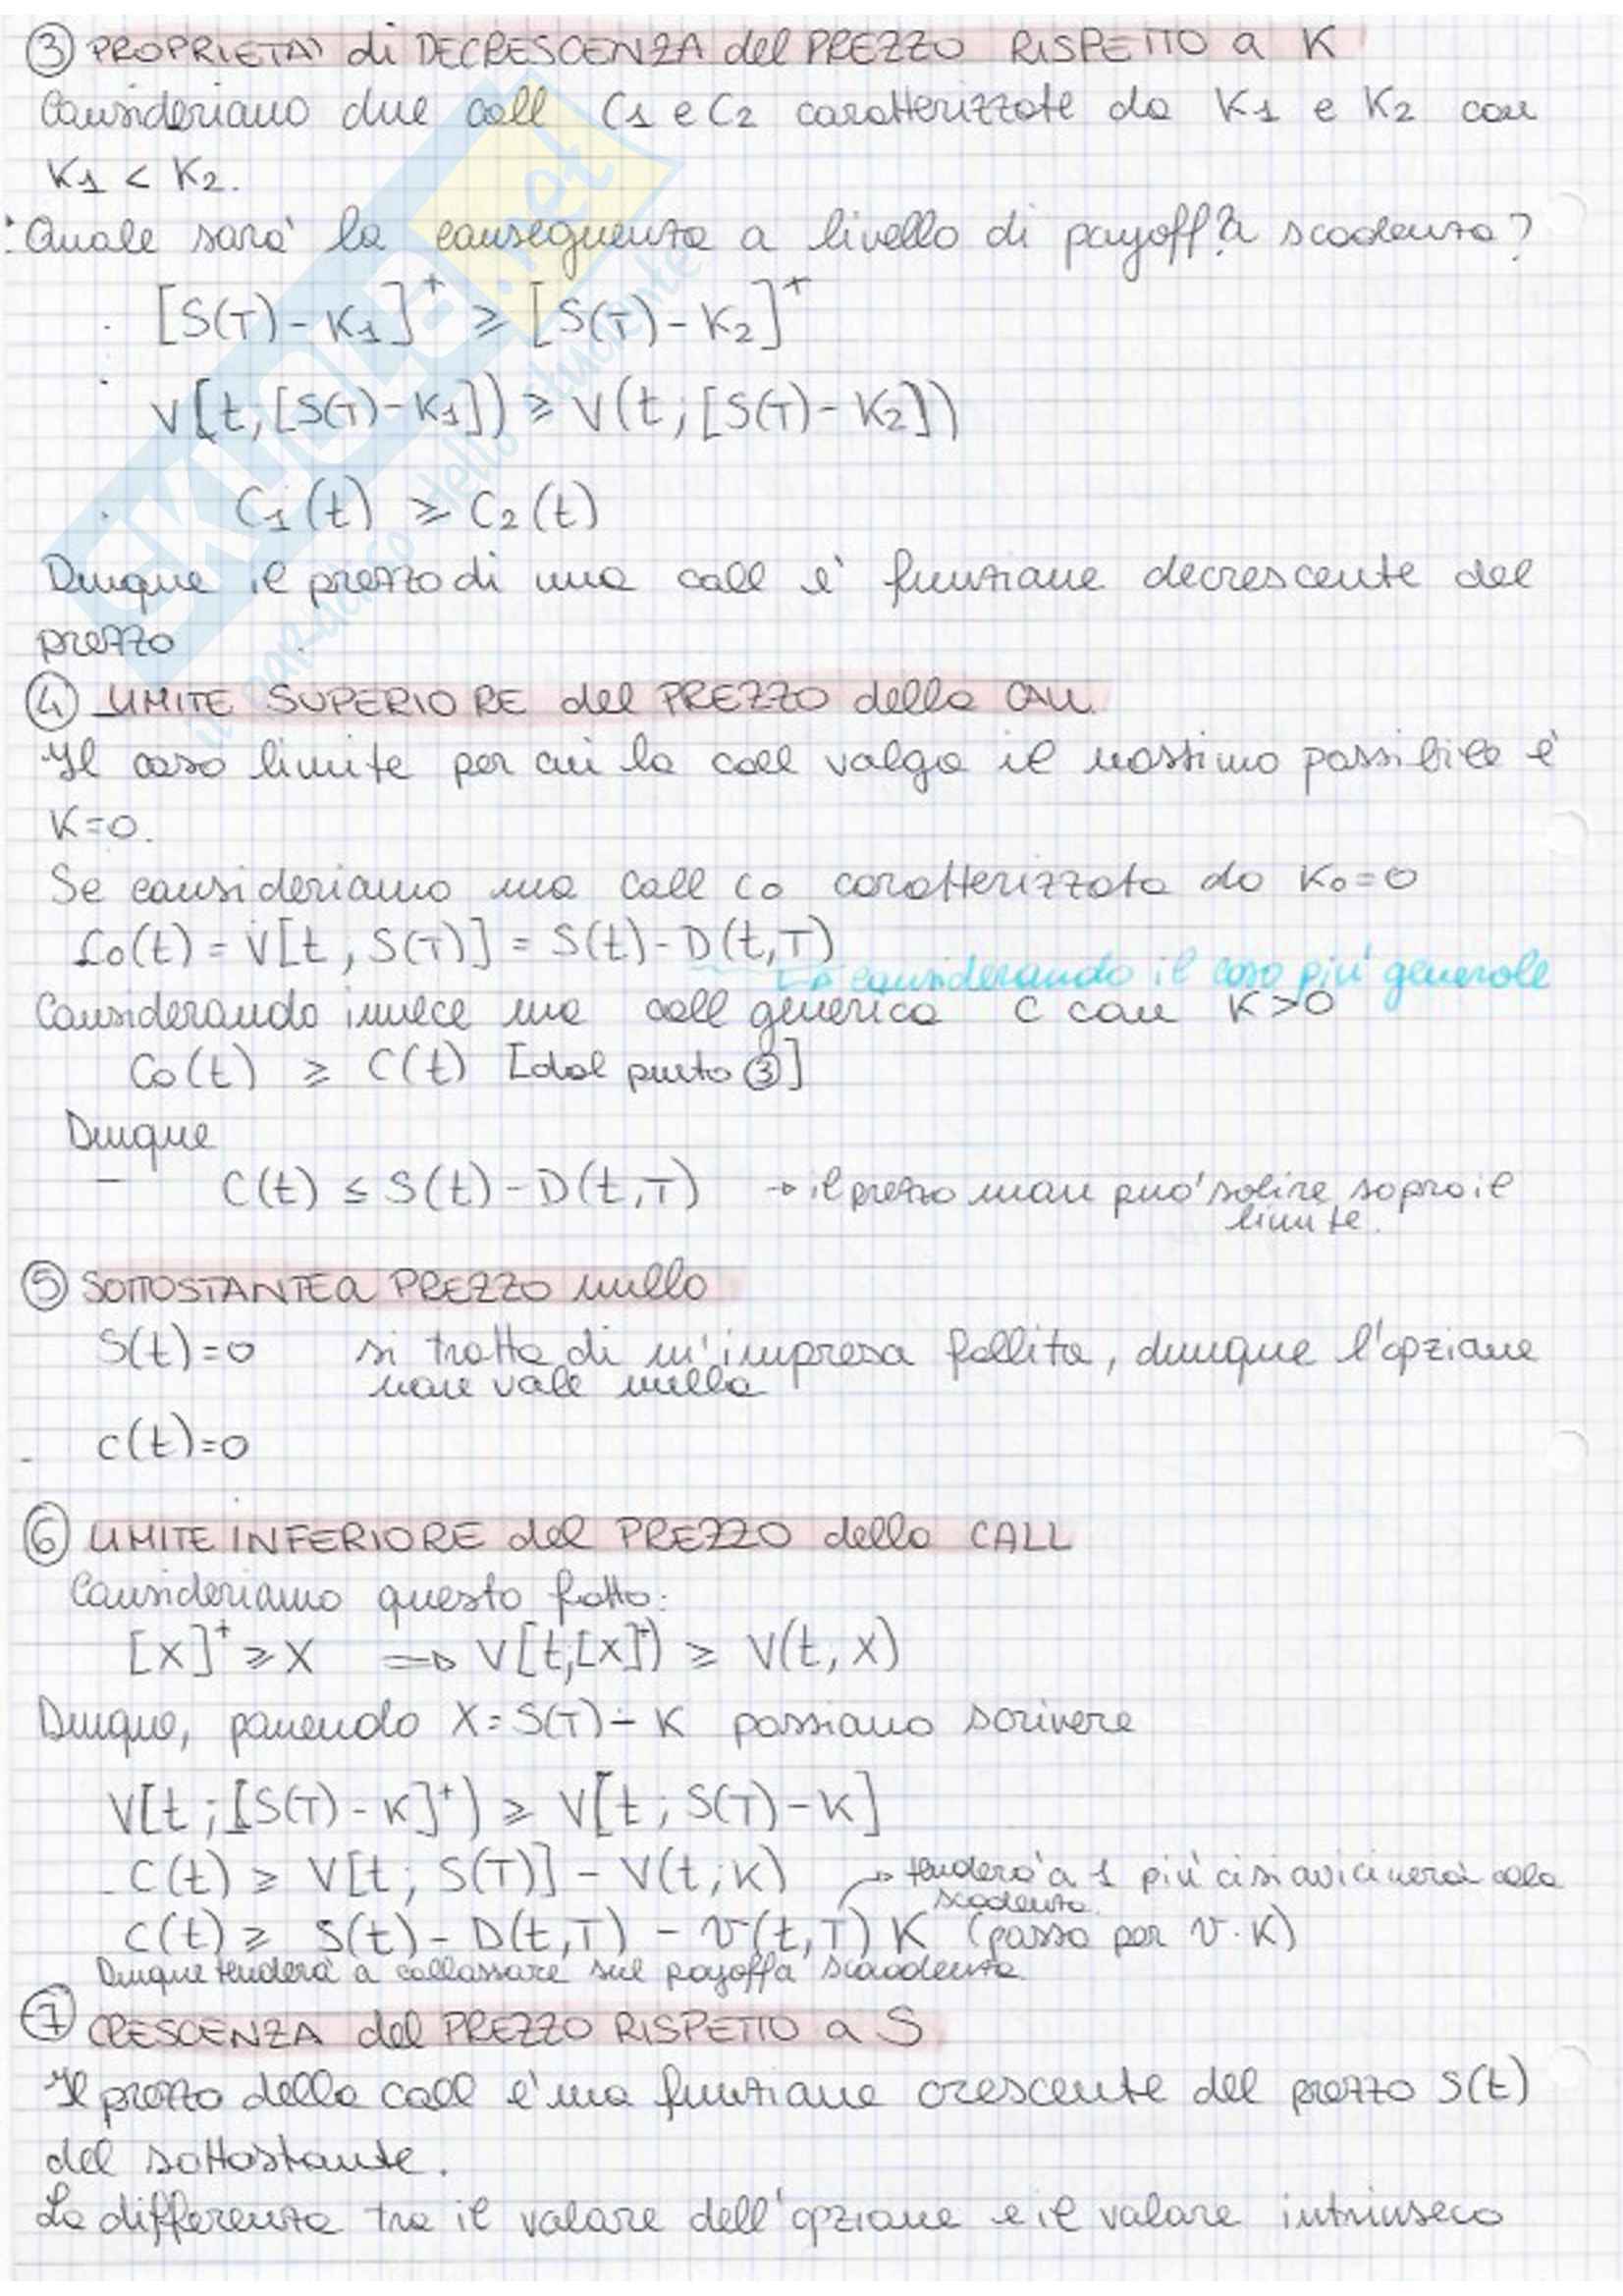 ③ PROPRIETA' di DECRESCENZA del PREZZO RISPETTO a K
Consideriamo due call C1 e C2 caratterizzate da K1 e K2 con
K1 < K2.
Quale sara' la conseguenza a livello di payoff? a scadenza?
[S(T) - K1]⁺ ≥ [S(T) - K2]⁺
V[t, [S(T) - K1]) ≥ V(t; [S(T) - K2])
C1(t) ≥ C2(t)
Dunque il prezzo di una call e' funzione decrescente del
prezzo
④ LIMITE SUPERIORE del PREZZO della CALL
Il caso limite per cui la call valga il massimo possibile e'
K=0.
Se consideriamo una call C0 caratterizzata da K0=0
C0(t) = V[t, S(T)] = S(t) - D(t,T)
↳ considerando il caso piu' generale
Considerando invece una call generica C con K>0
C0(t) ≥ C(t) [dal punto ③]
Dunque
- C(t) ≤ S(t) - D(t,T) → il prezzo non puo' salire sopra il
limite.
⑤ SOTTOSTANTE a PREZZO nullo
S(t)=0 si tratta di un'impresa fallita, dunque l'opzione
non vale nulla
c(t)=0
⑥ LIMITE INFERIORE del PREZZO della CALL
Consideriamo questo fatto:
[X]⁺ ≥ X ⇒ V[t,[X]⁺) ≥ V(t, X)
Dunque, ponendo X = S(T) - K possiamo scrivere
V[t; [S(T) - K]⁺) ≥ V[t; S(T) - K]
C(t) ≥ V[t; S(T)] - V(t; K) → tendera' a 1 piu' ci si avicinera' alla
scadenza.
C(t) ≥ S(t) - D(t,T) - v(t,T) K (passo per v·K)
Dunque tendera' a collassare sul payoff a scaadenza
⑦ CRESCENZA del PREZZO RISPETTO a S
Il prezzo della call e' una funzione crescente del prezzo S(t)
del sottostante.
La differenza tra il valore dell'opzione e il valore intrinseco
SKUOLA.net
il paradiso dello studente